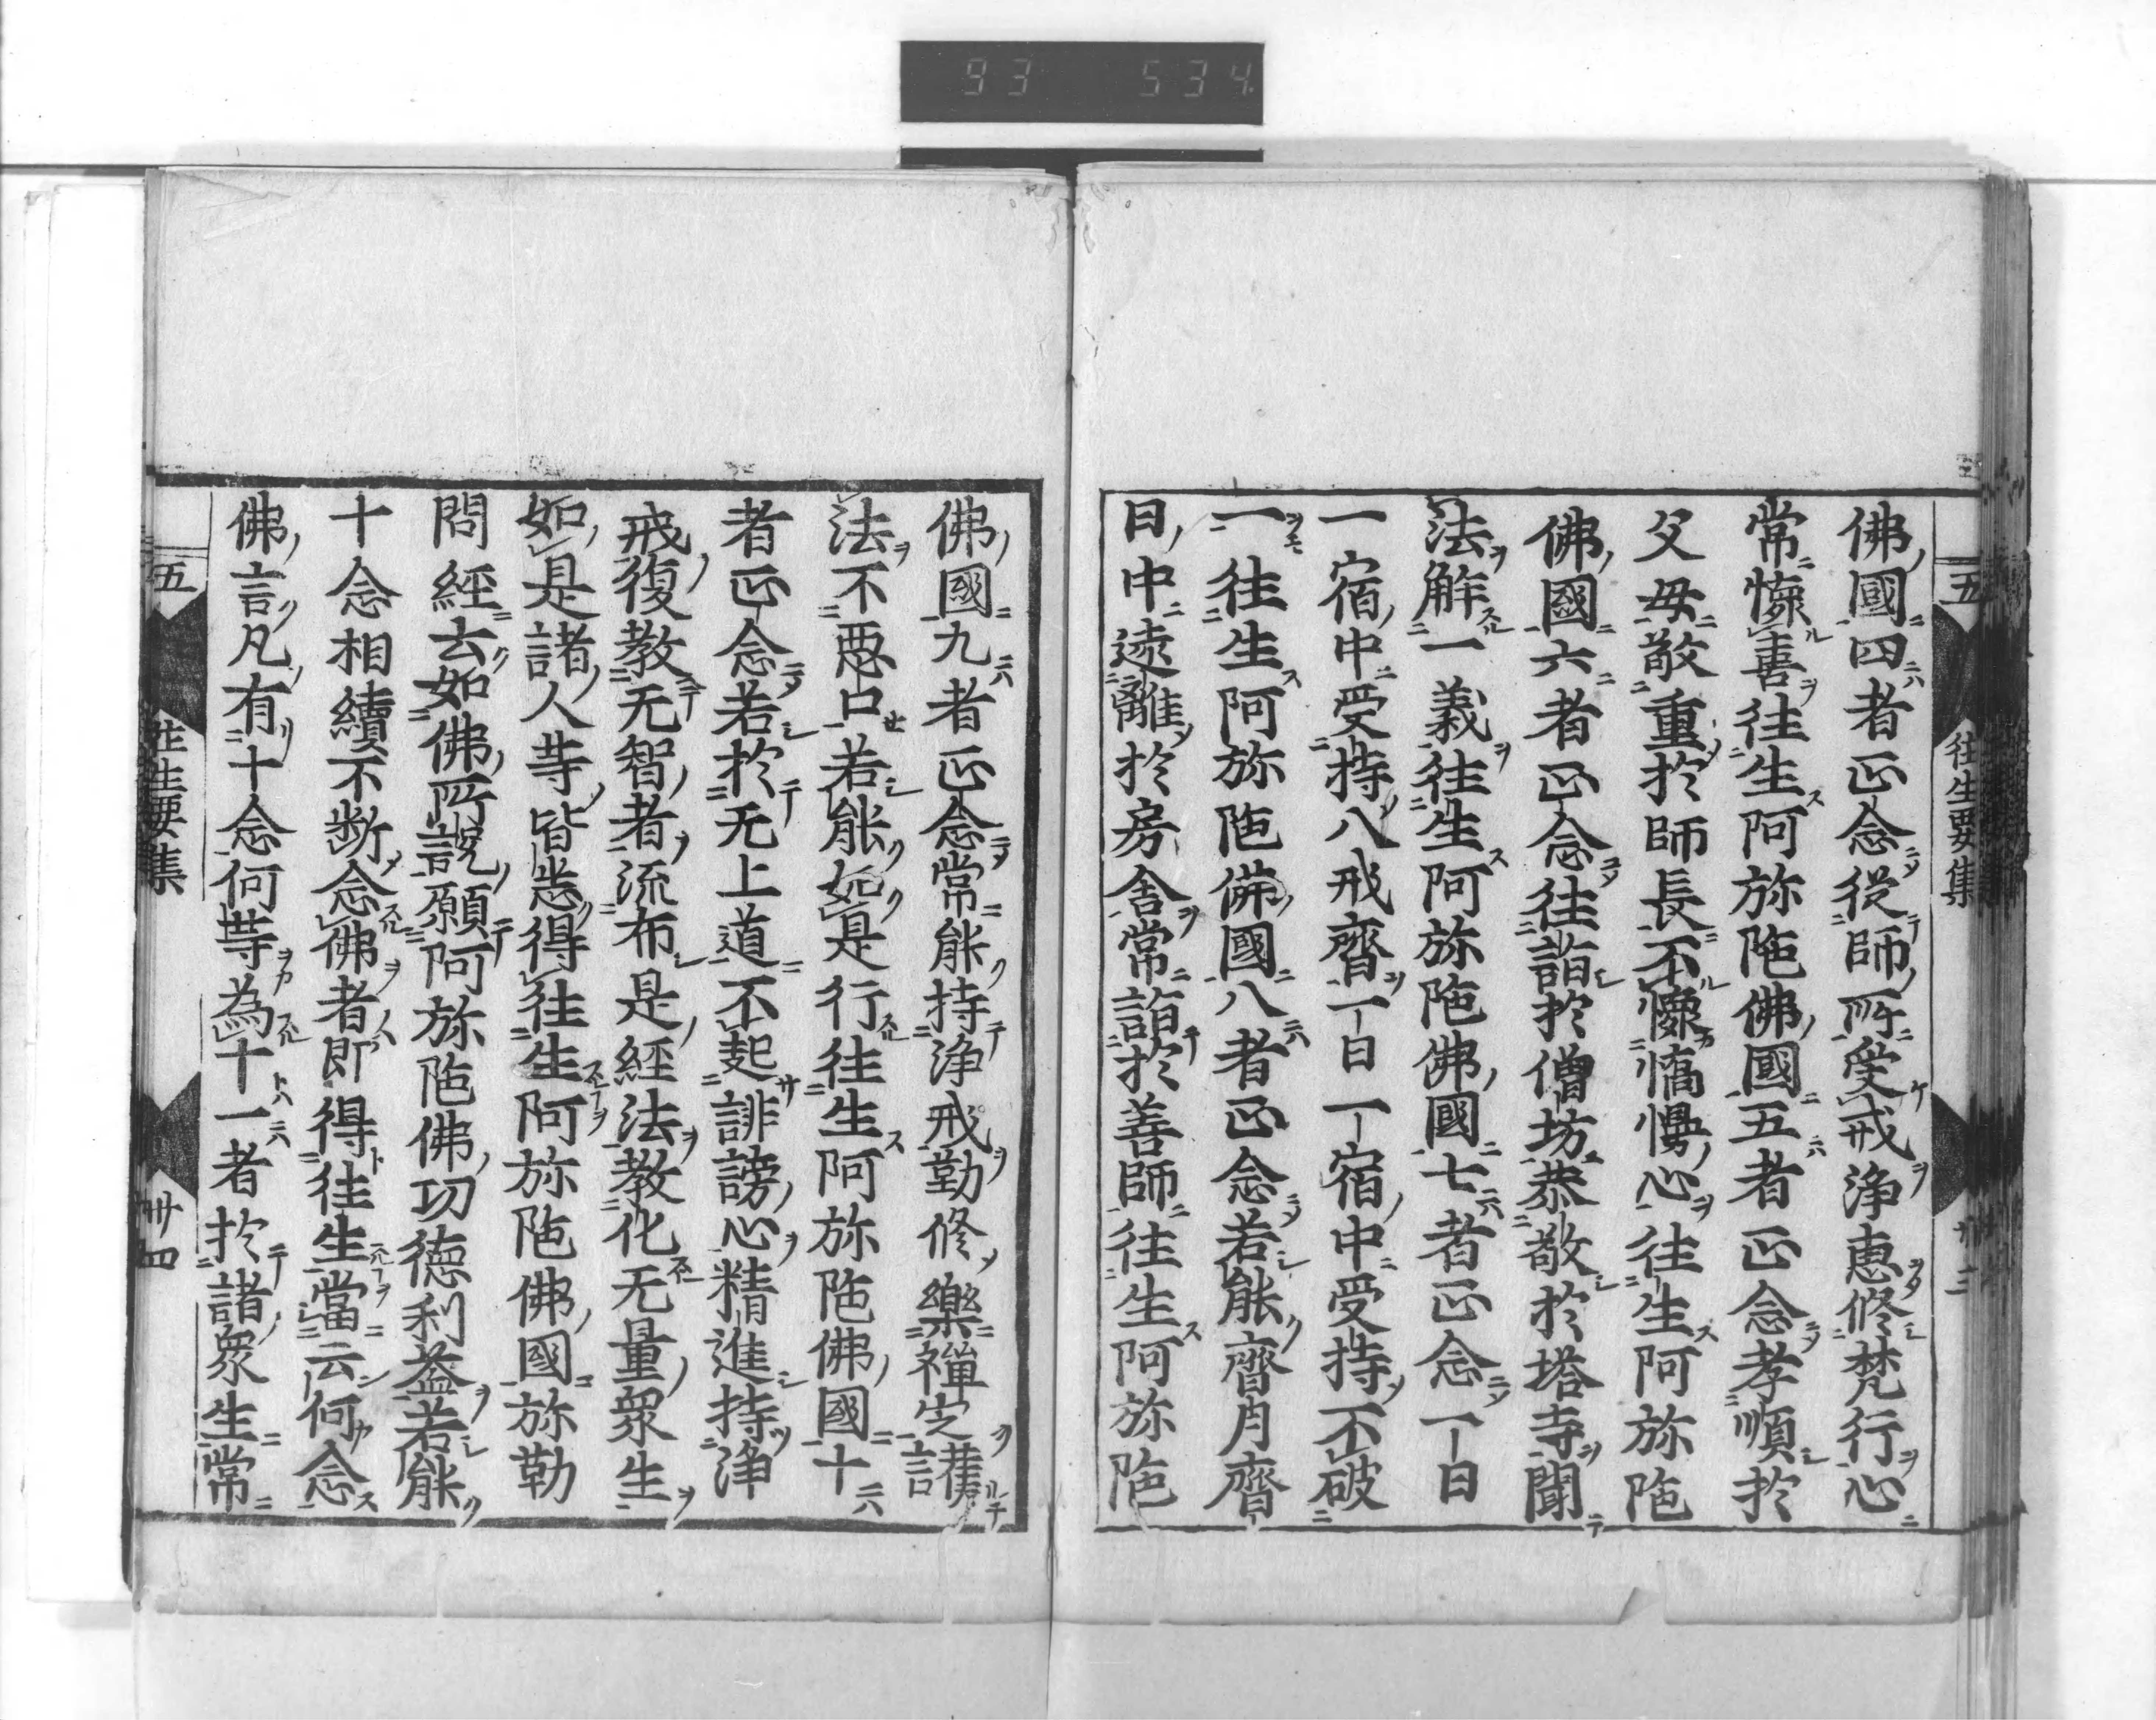 93 534
五 往生要集 卅三
佛國四者正念從師所受戒淨恵修梵行心
常懷善往生阿弥陁佛國五者正念孝順於
父母敬重於師長不懷憍慢心往生阿弥陁
佛國六者正念往詣於僧坊恭敬於塔寺聞
法解一義往生阿弥陁佛國七者正念一日
一宿中受持八戒齋一日一宿中受持不破
一往生阿弥陁佛國八者正念若能齋月齋
日中遠離於房舎常詣於善師往生阿弥陁
佛國九者正念常能持淨戒勤修樂禪定護
法不惡口若能如是行往生阿弥陁佛國十
者正念若於无上道不起誹謗心精進持淨
戒復教无智者流布是經法教化无量衆生
如是諸人䒭皆悉得往生阿弥陁佛國弥勒
問經云如佛所說願阿弥陁佛功德利益若能
十念相續不断念佛者即得往生當云何念
佛言凡有十念何䒭為十一者於諸衆生常
五 往生要集 卅四